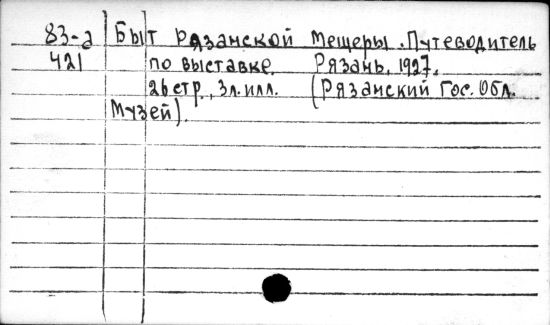 83-а Быт Рязанской Мещеры. Путеводитель
421 по выставке. Рязань, 1927.
26 стр., 3 л. илл. (Рязанский Гос. Обл.
Музей).